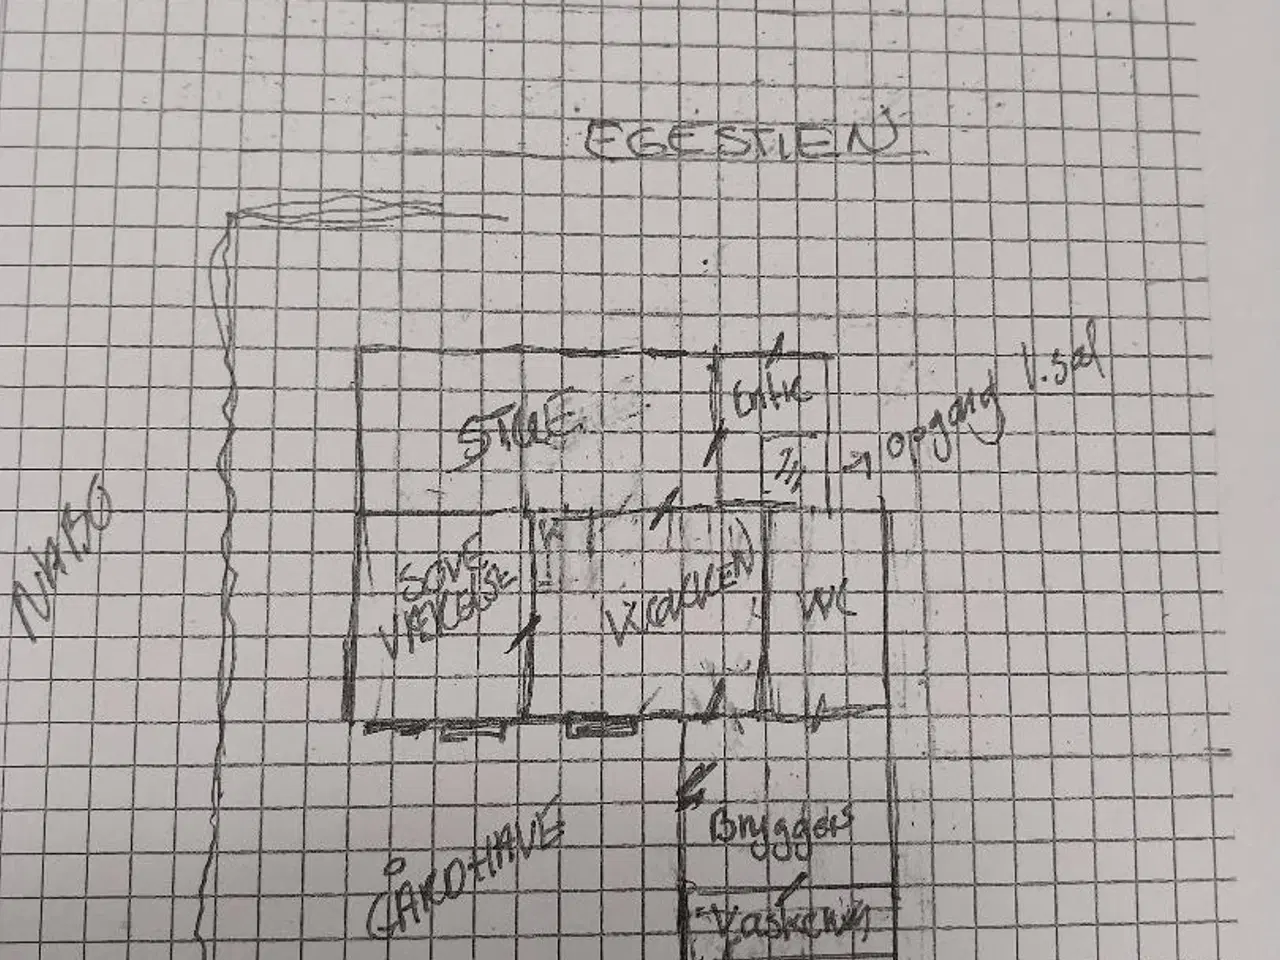 EGESTIEN
STUE
Entre
opgang 1. sal
NABO
SOVE
VÆRELSE
KØKKEN
WC
Bryggers
GÅRDHAVE
Vaskerum